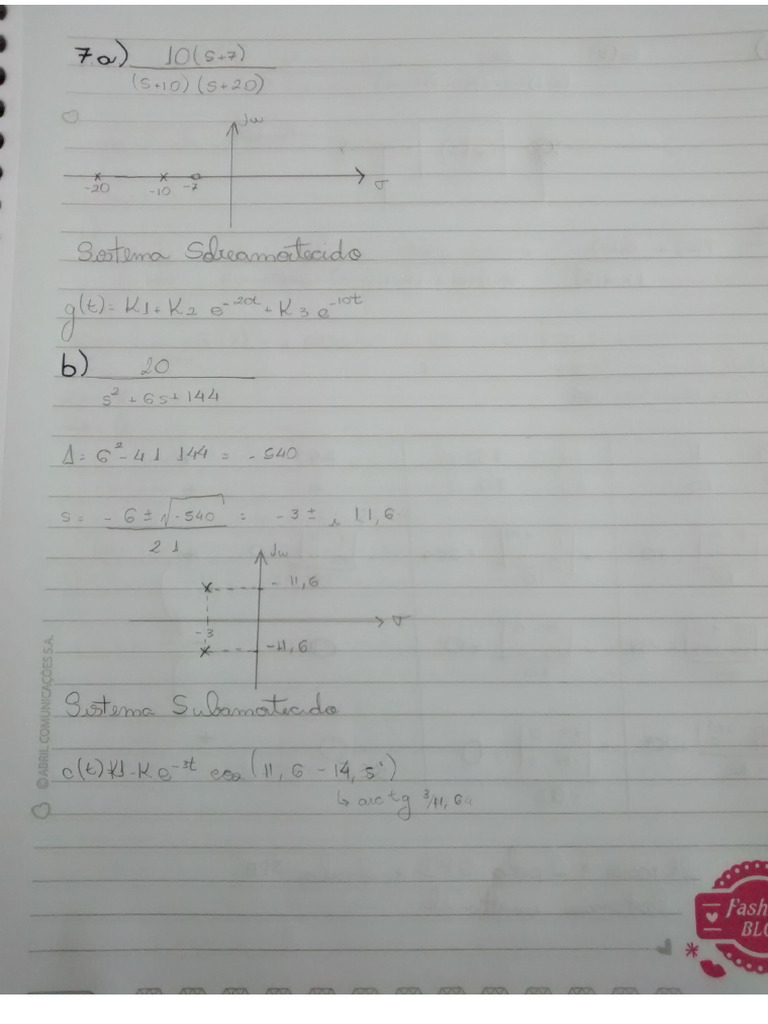 7a) 10(s+7)
(s+10) (s+20)
jω
-20 -10 -7 σ
Sistema Sobreamortecido
g(t)= K1+K2 e^-20t + K3 e^-10t
b) 20
s² + 6s + 144
Δ= 6² - 4 1 144 = -540
s= -6 ± √-540 = -3 ± j 11,6
2 1
jω
- 11,6
σ
-3
-11,6
Sistema Subamortecido
c(t) K1 - K e^-3t cos (11,6 - 14,5°)
↳ arc tg 3/11,6
© ABRIL COMUNICAÇÕES S.A.
Fash
BLO